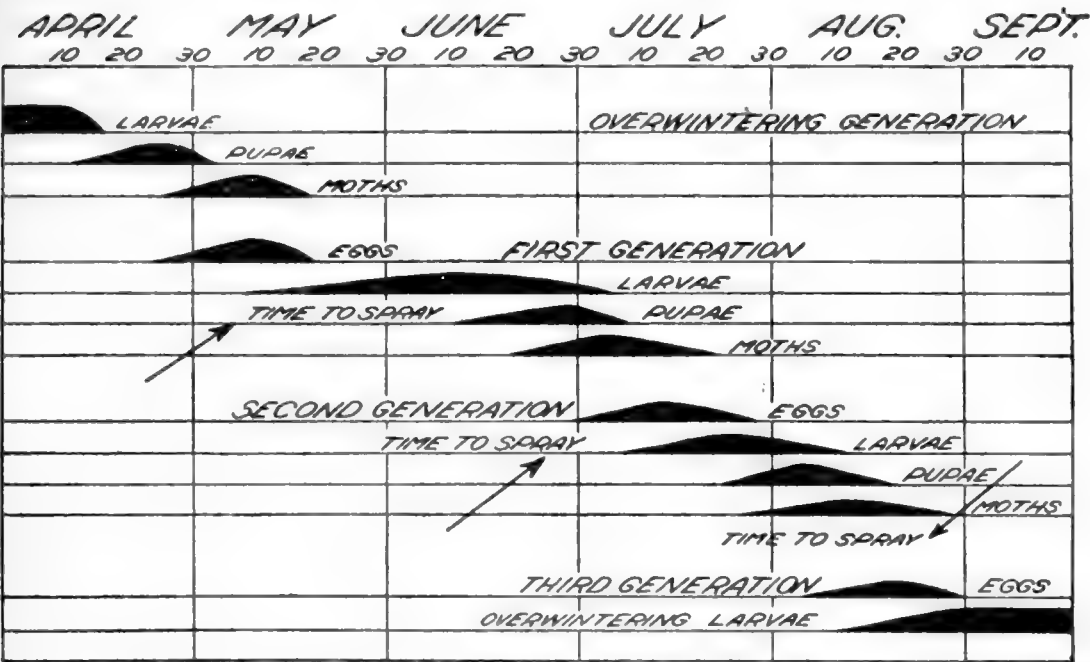 APRIL MAY JUNE JULY AUG. SEPT.
10 20 30 10 20 30 10 20 30 10 20 30 10 20 30 10
LARVAE OVERWINTERING GENERATION
PUPAE
MOTHS
EGGS FIRST GENERATION
LARVAE
TIME TO SPRAY PUPAE
MOTHS
SECOND GENERATION EGGS
TIME TO SPRAY LARVAE
PUPAE
MOTHS
TIME TO SPRAY
THIRD GENERATION EGGS
OVERWINTERING LARVAE